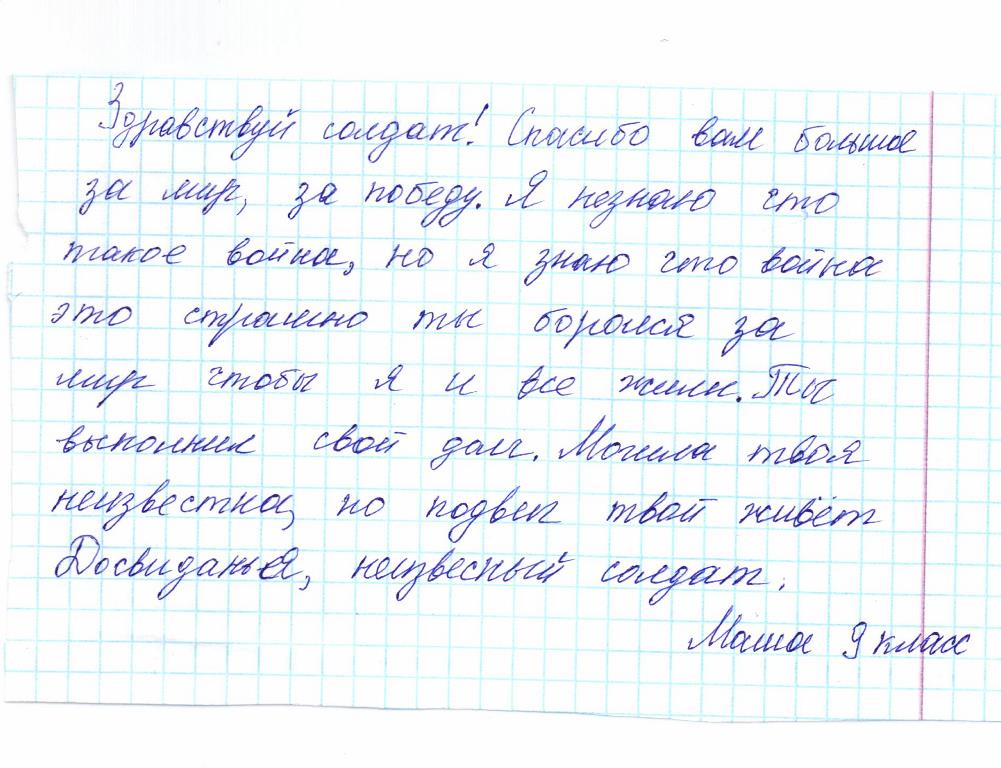 Здравствуй солдат! Спасибо вам большое
за мир, за победу. Я незнаю что
такое война, но я знаю что война
это страшно ты боролся за
мир чтобы я и все жили. Ты
выполнил свой долг. Могила твоя
неизвестна, но подвег твой живёт
Досвиданья, неизвесный солдат.
Маша 9 класс